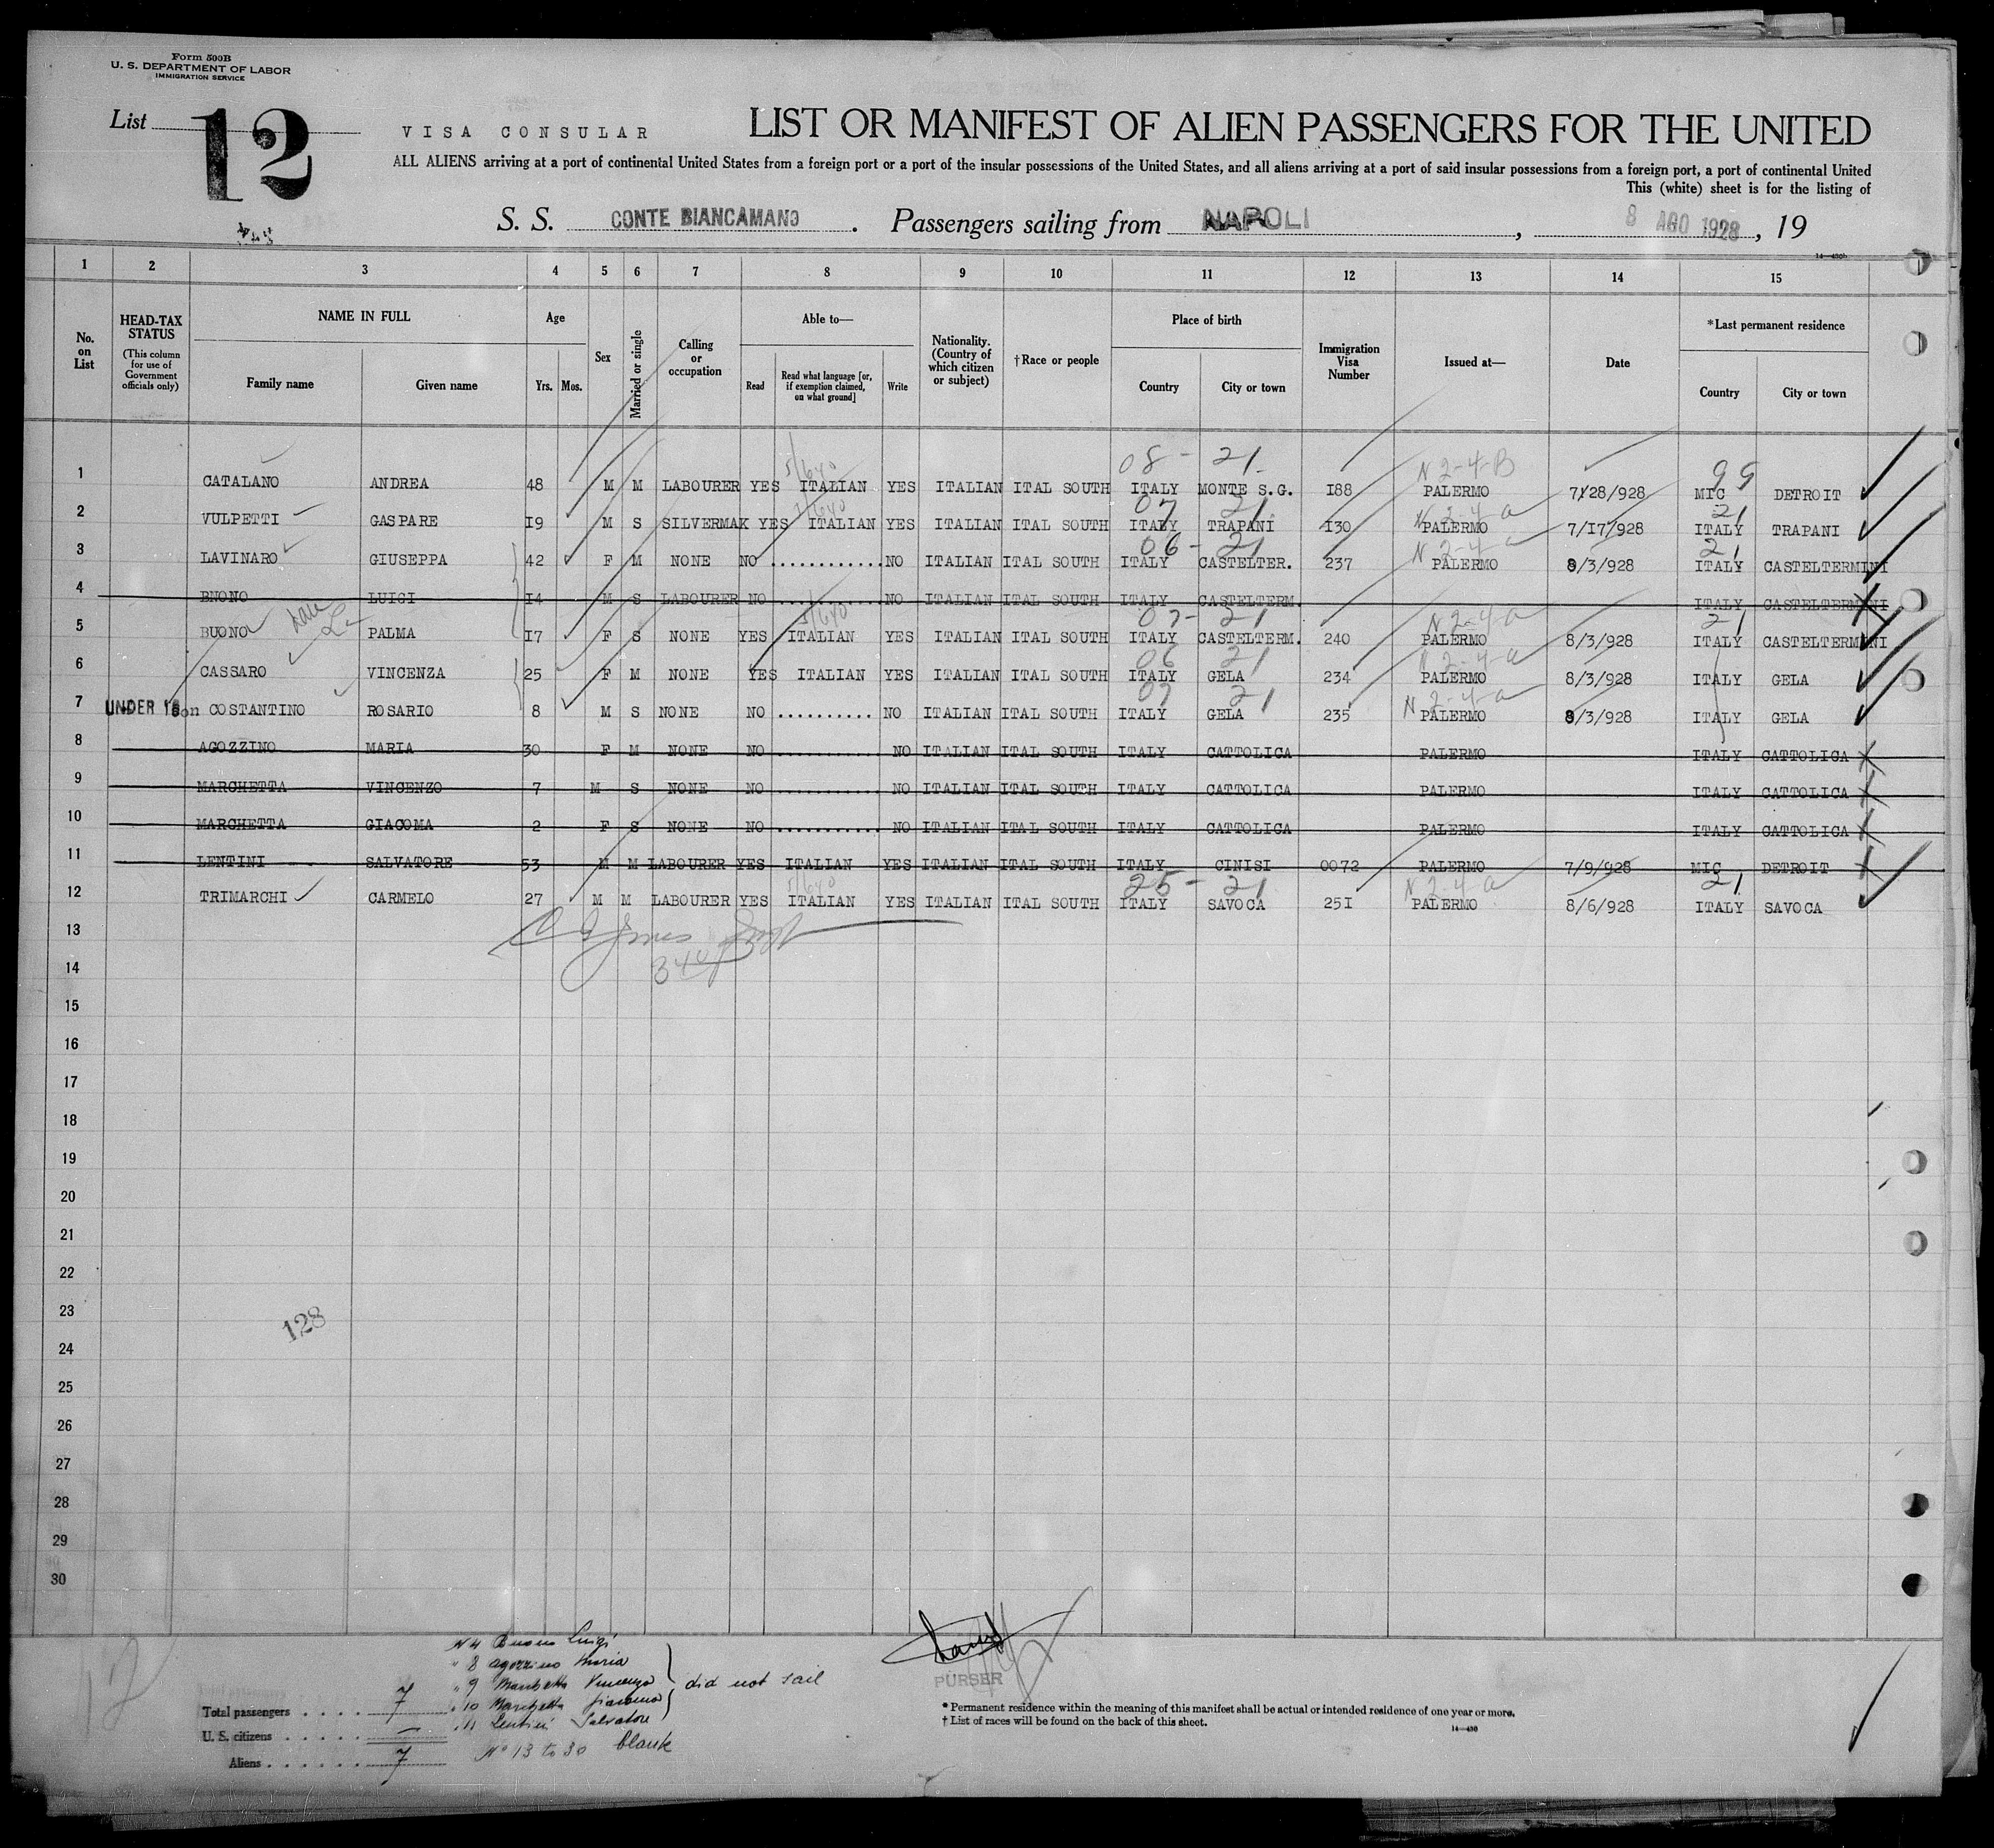 Form 500B
U. S. DEPARTMENT OF LABOR
IMMIGRATION SERVICE
List 12
VISA CONSULAR
LIST OR MANIFEST OF ALIEN PASSENGERS FOR THE UNITED
ALL ALIENS arriving at a port of continental United States from a foreign port or a port of the insular possessions of the United States, and all aliens arriving at a port of said insular possessions from a foreign port, a port of continental United
This (white) sheet is for the listing of
S. S. CONTE BIANCAMANO. Passengers sailing from NAPOLI, 8 AGO 1928, 19
14—430b
1 2 3 4 5 6 7 8 9 10 11 12 13 14 15
No. on List
HEAD-TAX STATUS (This column for use of Government officials only)
NAME IN FULL
Family name Given name
Age
Yrs. Mos.
Sex
Married or single
Calling or occupation
Able to—
Read Read what language [or, if exemption claimed, on what ground] Write
Nationality. (Country of which citizen or subject)
†Race or people
Place of birth
Country City or town
Immigration Visa Number
Issued at—
Date
*Last permanent residence
Country City or town
5/640 08 - 21 N 2-4-B 99
1 CATALANO ANDREA 48 M M LABOURER YES ITALIAN YES ITALIAN ITAL SOUTH ITALY MONTE S.G. I88 PALERMO 7/28/928 MIC DETROIT
5/640 07 21 N 2-4-a 21
2 VULPETTI GASPARE I9 M S SILVERMAK YES ITALIAN YES ITALIAN ITAL SOUTH ITALY TRAPANI I30 PALERMO 7/I7/928 ITALY TRAPANI
06 - 21 N 2-4-a 21
3 LAVINARO GIUSEPPA 42 F M NONE NO ............ NO ITALIAN ITAL SOUTH ITALY CASTELTER. 237 PALERMO 8/3/928 ITALY CASTELTERMINI
4 BNONO LUIGI I4 M S LABOURER NO ............ NO ITALIAN ITAL SOUTH ITALY CASTELTERM. ITALY CASTELTERMINI
5/640 07 - 21 N 2-4-a 21
5 BUONO PALMA I7 F S NONE YES ITALIAN YES ITALIAN ITAL SOUTH ITALY CASTELTERM. 240 PALERMO 8/3/928 ITALY CASTELTERMINI
06 21 N 2-4-a
6 CASSARO VINCENZA 25 F M NONE YES ITALIAN YES ITALIAN ITAL SOUTH ITALY GELA 234 PALERMO 8/3/928 ITALY GELA
07 21 N 2-4-a
7 UNDER 16 son COSTANTINO ROSARIO 8 M S NONE NO .......... NO ITALIAN ITAL SOUTH ITALY GELA 235 PALERMO 8/3/928 ITALY GELA
8 AGOZZINO MARIA 30 F M NONE NO ........... NO ITALIAN ITAL SOUTH ITALY CATTOLICA PALERMO ITALY CATTOLICA
9 MARCHETTA VINCENZO 7 M S NONE NO ........... NO ITALIAN ITAL SOUTH ITALY CATTOLICA PALERMO ITALY CATTOLICA
10 MARCHETTA GIACOMA 2 F S NONE NO ........... NO ITALIAN ITAL SOUTH ITALY CATTOLICA PALERMO ITALY CATTOLICA
11 LENTINI SALVATORE 53 M M LABOURER YES ITALIAN YES ITALIAN ITAL SOUTH ITALY CINISI 0072 PALERMO 7/9/928 MIC DETROIT
5/640 25 - 21 N 2-4-a 21
12 TRIMARCHI CARMELO 27 M M LABOURER YES ITALIAN YES ITALIAN ITAL SOUTH ITALY SAVOCA 25I PALERMO 8/6/928 ITALY SAVOCA
13
14
15
16
17
18
19
20
21
22
23
128
24
25
26
27
28
29
30
N 4 Buono Luigi
" 8 Agozzino Maria
" 9 Marchetta Vincenzo
" 10 Marchetta Giacoma
" 11 Lentini Salvatore
did not sail
No 13 to 30 blank
Total passengers . . . . 7
U. S. citizens . . . . . —
Aliens . . . . . . 7
PURSER
* Permanent residence within the meaning of this manifest shall be actual or intended residence of one year or more.
† List of races will be found on the back of this sheet.
14—430